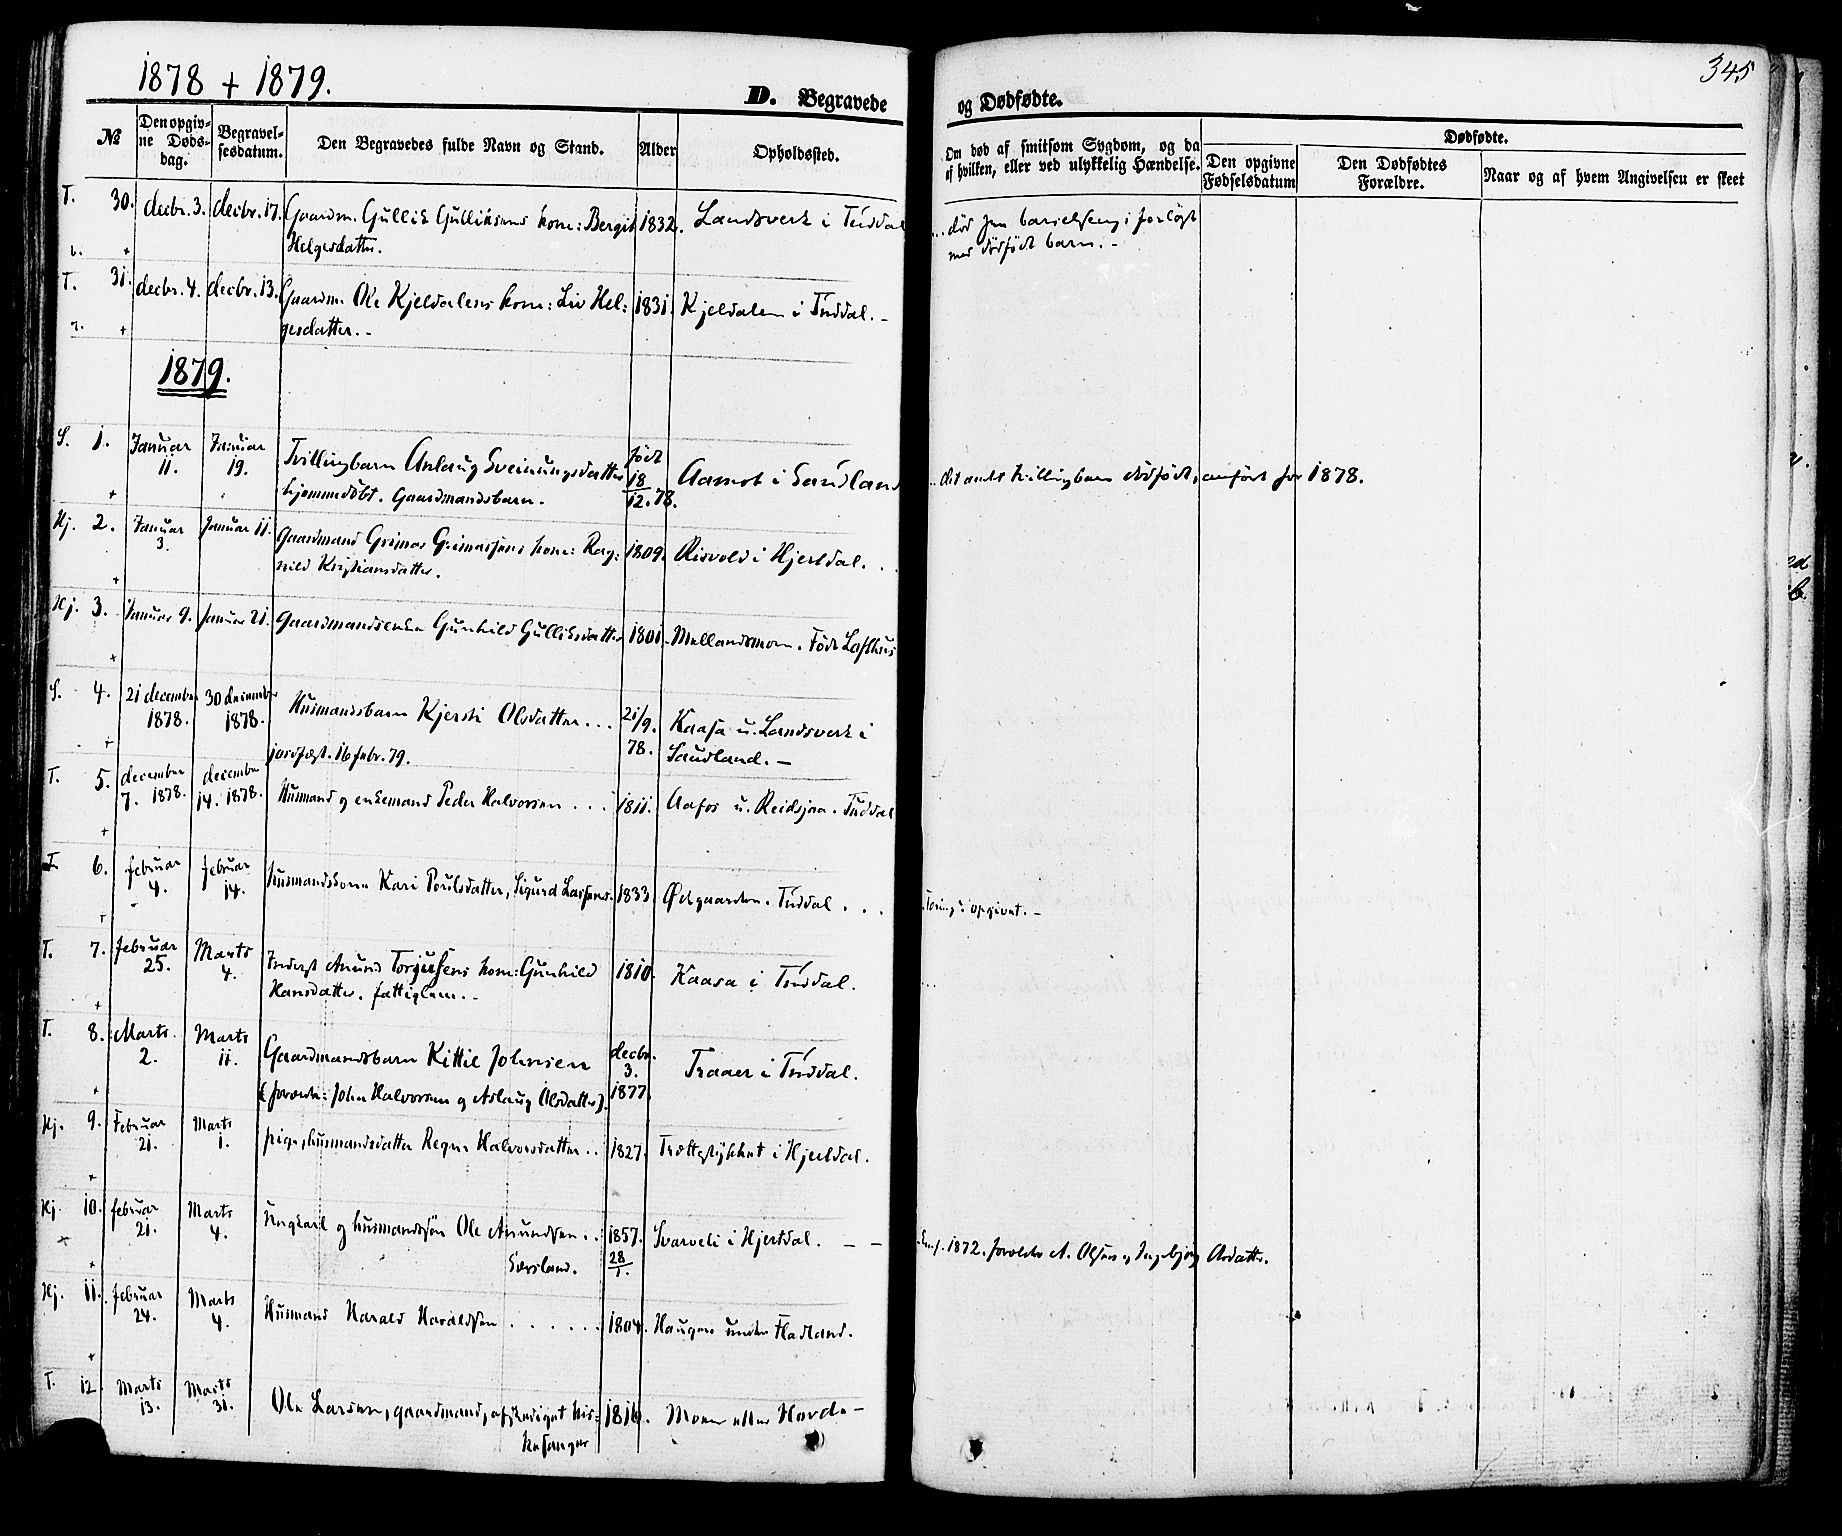 1878 + 1879.
D. Begravede
№
Den opgiv-
ne Døds-
dag.
Begravel-
sesdatum.
Den Begravedes fulde Navn og Stand.
Alder
Opholdssted.
T. 30. decbr. 3. decbr. 17. Gaardm. Gullik Gulliksens kone: Bergit 1832. Landsverk i Tuddal
Helgesdatter.
T. 31. decbr. 4. decbr. 13. Gaardm. Ole Kjeldalens kone: Liv Hel- 1831. Kjeldalen i Tuddal. -
gesdatter. -
1879.
S. 1. Januar 11. Januar 19. Tvillingbarn Anlaug Sveinungsdatter født 18/12. 78. Aamot i Sauland
hjemmedøbt. Gaardmandsbarn.
Hj. 2. Januar 3. Januar 11. Gaardmand Grimar Grimarsens kone: Rag- 1809. Risvold i Hjertdal.
nild Kristiansdatter.
Hj. 3. Januar 9. Januar 21. Gaardmandsenke Gunhild Gulliksdatter 1801. Mellandsmoen. Født Lofthus
S. 4. 21 december 1878. 30 december 1878. Husmandsbarn Kjersti Olsdatter... 21/9. 78. Kaasa u. Landsverk i
Saudland. -
jordfæst. 16 febr. 79.
T. 5. december 7. 1878. december 14. 1878. Husmand og enkemand Peder Halvorsen... 1811. Aafos u. Reidsjaa. Tuddal
T. 6. februar 4. februar 14. Husmandskone Kari Poulsdatter, Sigurd Larsens. 1833. Ødegaarden. Tuddal...
T. 7. februar 25. Marts 4. Inderst Anund Torjusens kone: Gunhild 1810. Kaasa i Tuddal.
Hansdatter. fattiglem. -
T. 8. Marts 2. Marts 11. Gaardmandsbarn Kittil Johnsen decbr. 3. 1877. Traaer i Tuddal.
(forældre: John Halvorsen og Aslaug Olsdatter).
Hj. 9. Februar 21. Marts 1. pige, husmandsdatter Regne Halvorsdatter.. 1827. Trættestykket i Hjertdal.
Hj. 10. februar 21. Marts 4. Ungkarl og husmandssøn Ole Anundsen.. 1857. 28/1. Svarveli i Hjertdal. - -
Hj. 11. februar 24. Marts 4. Husmand Harald Haraldsen...... 1804. Haugen under Fladland.
T. 12 Marts 13. Marts 31. Ole Larsen, gaardmand, afskediget kir- 1816. Moen eller Horde -
kesanger
345
og Dødfødte.
Om død af smitsom Sygdom, og da
af hvilken, eller ved ulykkelig Hændelse.
Dødfødte.
Den opgivne
Fødselsdatum
Den Dødfødtes
Forældre.
Naar og af hvem Angivelsen er skeet
død i barselseng; forløst
med dødfødt barn. -
det andet tvillingbarn dødfødt, anført for 1878.
Tæring opgivet. -
1872. forældre A. Olsen og Ingebjørg Asdatter.